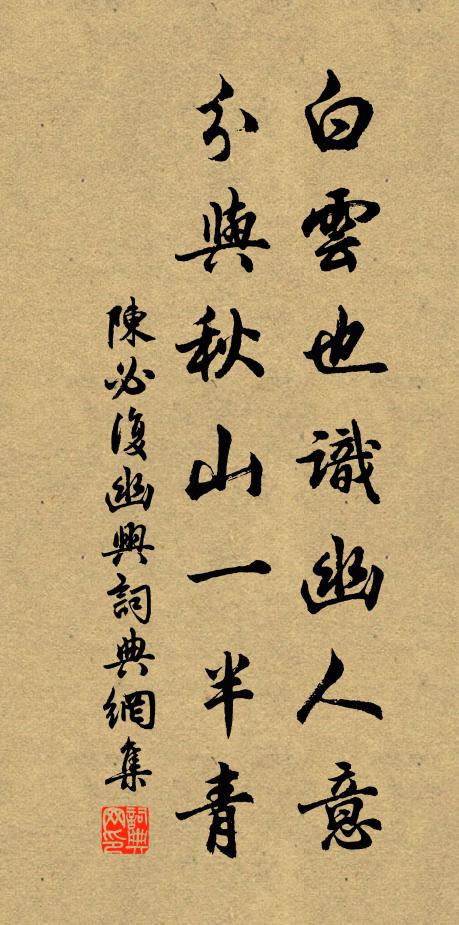 白雲也識幽人意
分與秋山一半青
陳必復幽興詞典網集
詞典网印